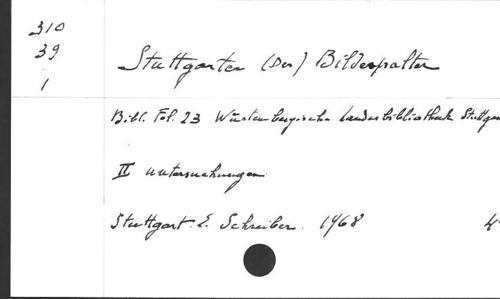 310
39
1
Stuttgarter (Der) Bilderpsalter
Bibl. Fol. 23 Württembergische Landesbibliothek Stuttgar
II Untersuchungen
Stuttgart. E. Schreiber. 1968 4°